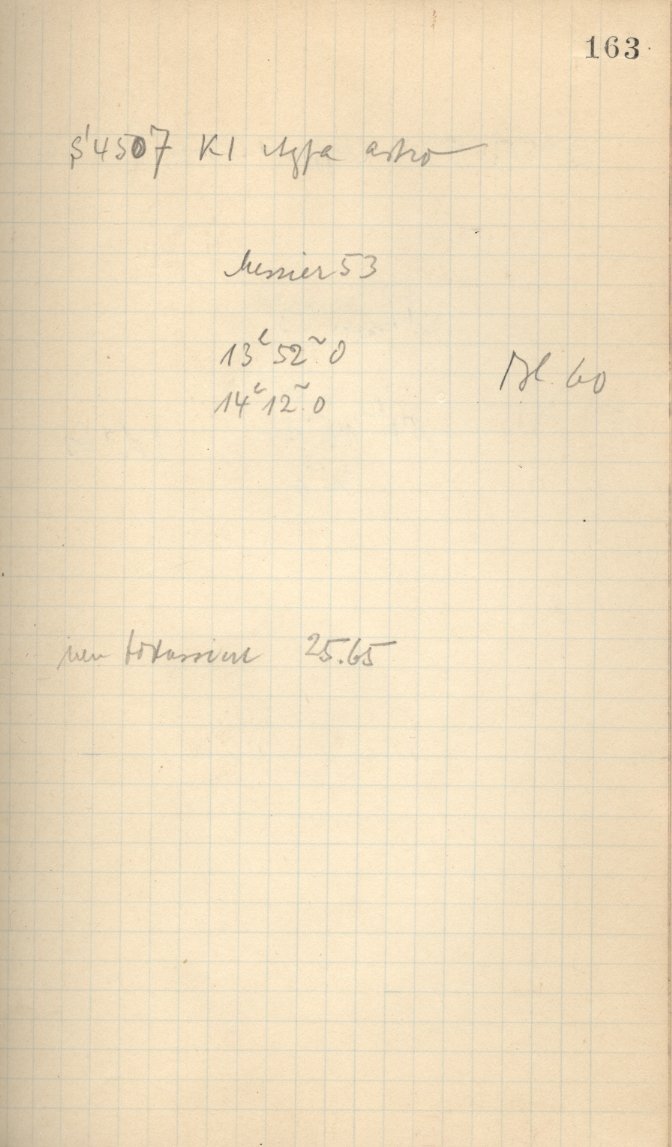 163
S 4507 Kl Agfa astro
Messier 53
13h 52m 0
14h 12m 0
Bl. 60
neu fokussiert 25.65